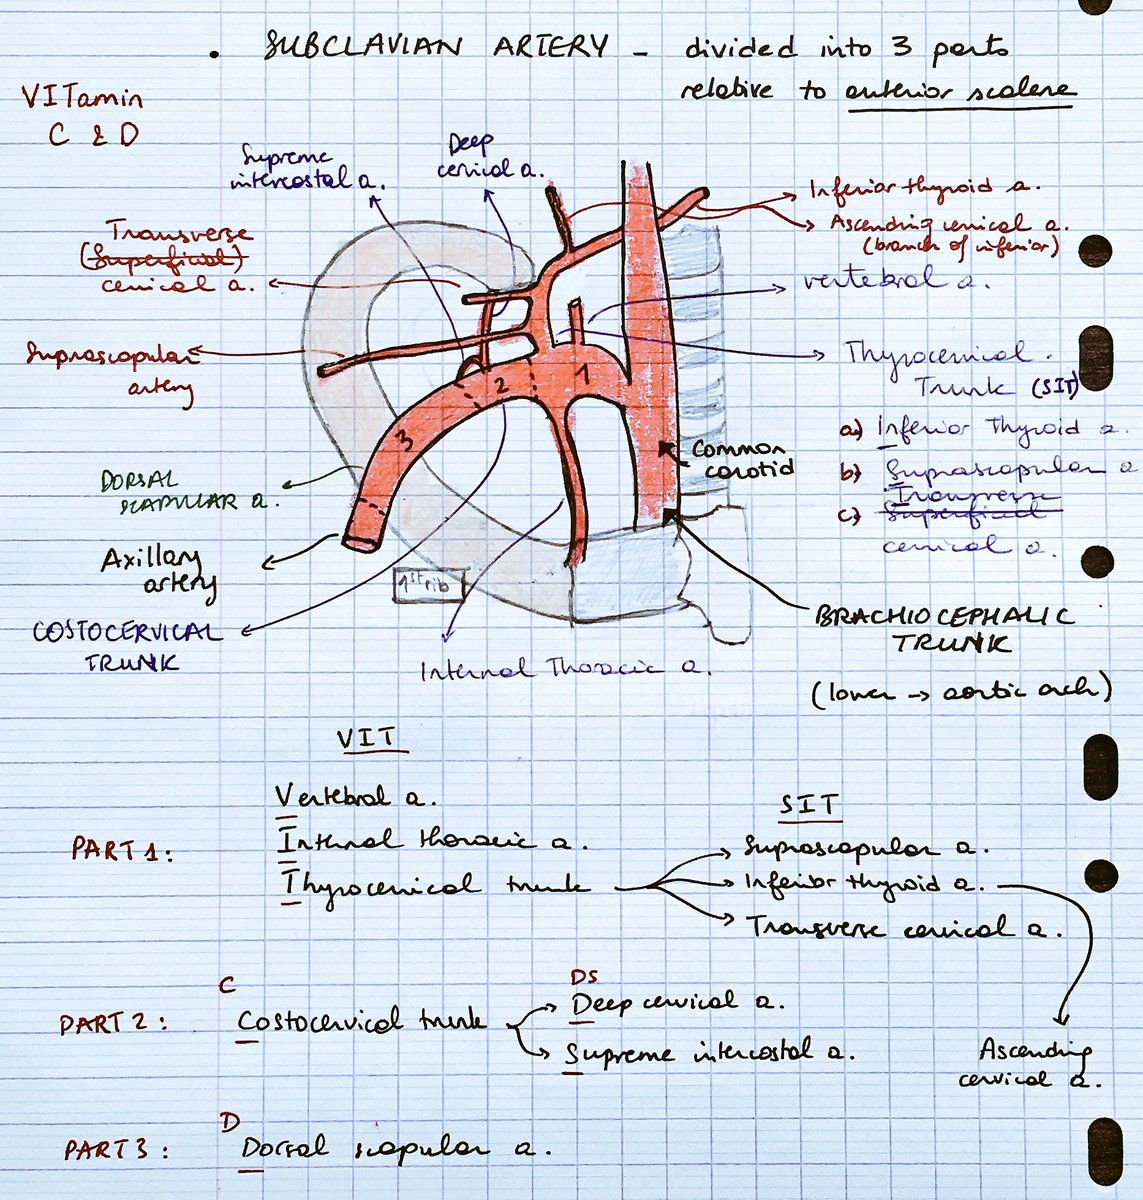 • SUBCLAVIAN ARTERY - divided into 3 parts
relative to anterior scalene
VITamin
C & D
Supreme
intercostal a.
Deep
cervical a.
Inferior thyroid a.
Ascending cervical a.
(branch of inferior)
Transverse
(Superficial)
cervical a.
vertebral a.
Suprascapular
artery
Thyrocervical
Trunk (SIT)
a) Inferior Thyroid a.
b) Suprascapular a
c) Transverse
Superficial
cervical a.
1
2
3
Common
carotid
DORSAL
SCAPULAR a.
Axillary
artery
1st rib
COSTOCERVICAL
TRUNK
Internal Thoracic a.
BRACHIOCEPHALIC
TRUNK
(lower → aortic arch)
VIT
Vertebral a.
PART 1: Internal thoracic a.
Thyrocervical trunk
SIT
Suprascapular a.
Inferior thyroid a.
Transverse cervical a.
Ascending
cervical a.
C
PART 2: Costocervical trunk
DS
Deep cervical a.
Supreme intercostal a.
D
PART 3: Dorsal scapular a.